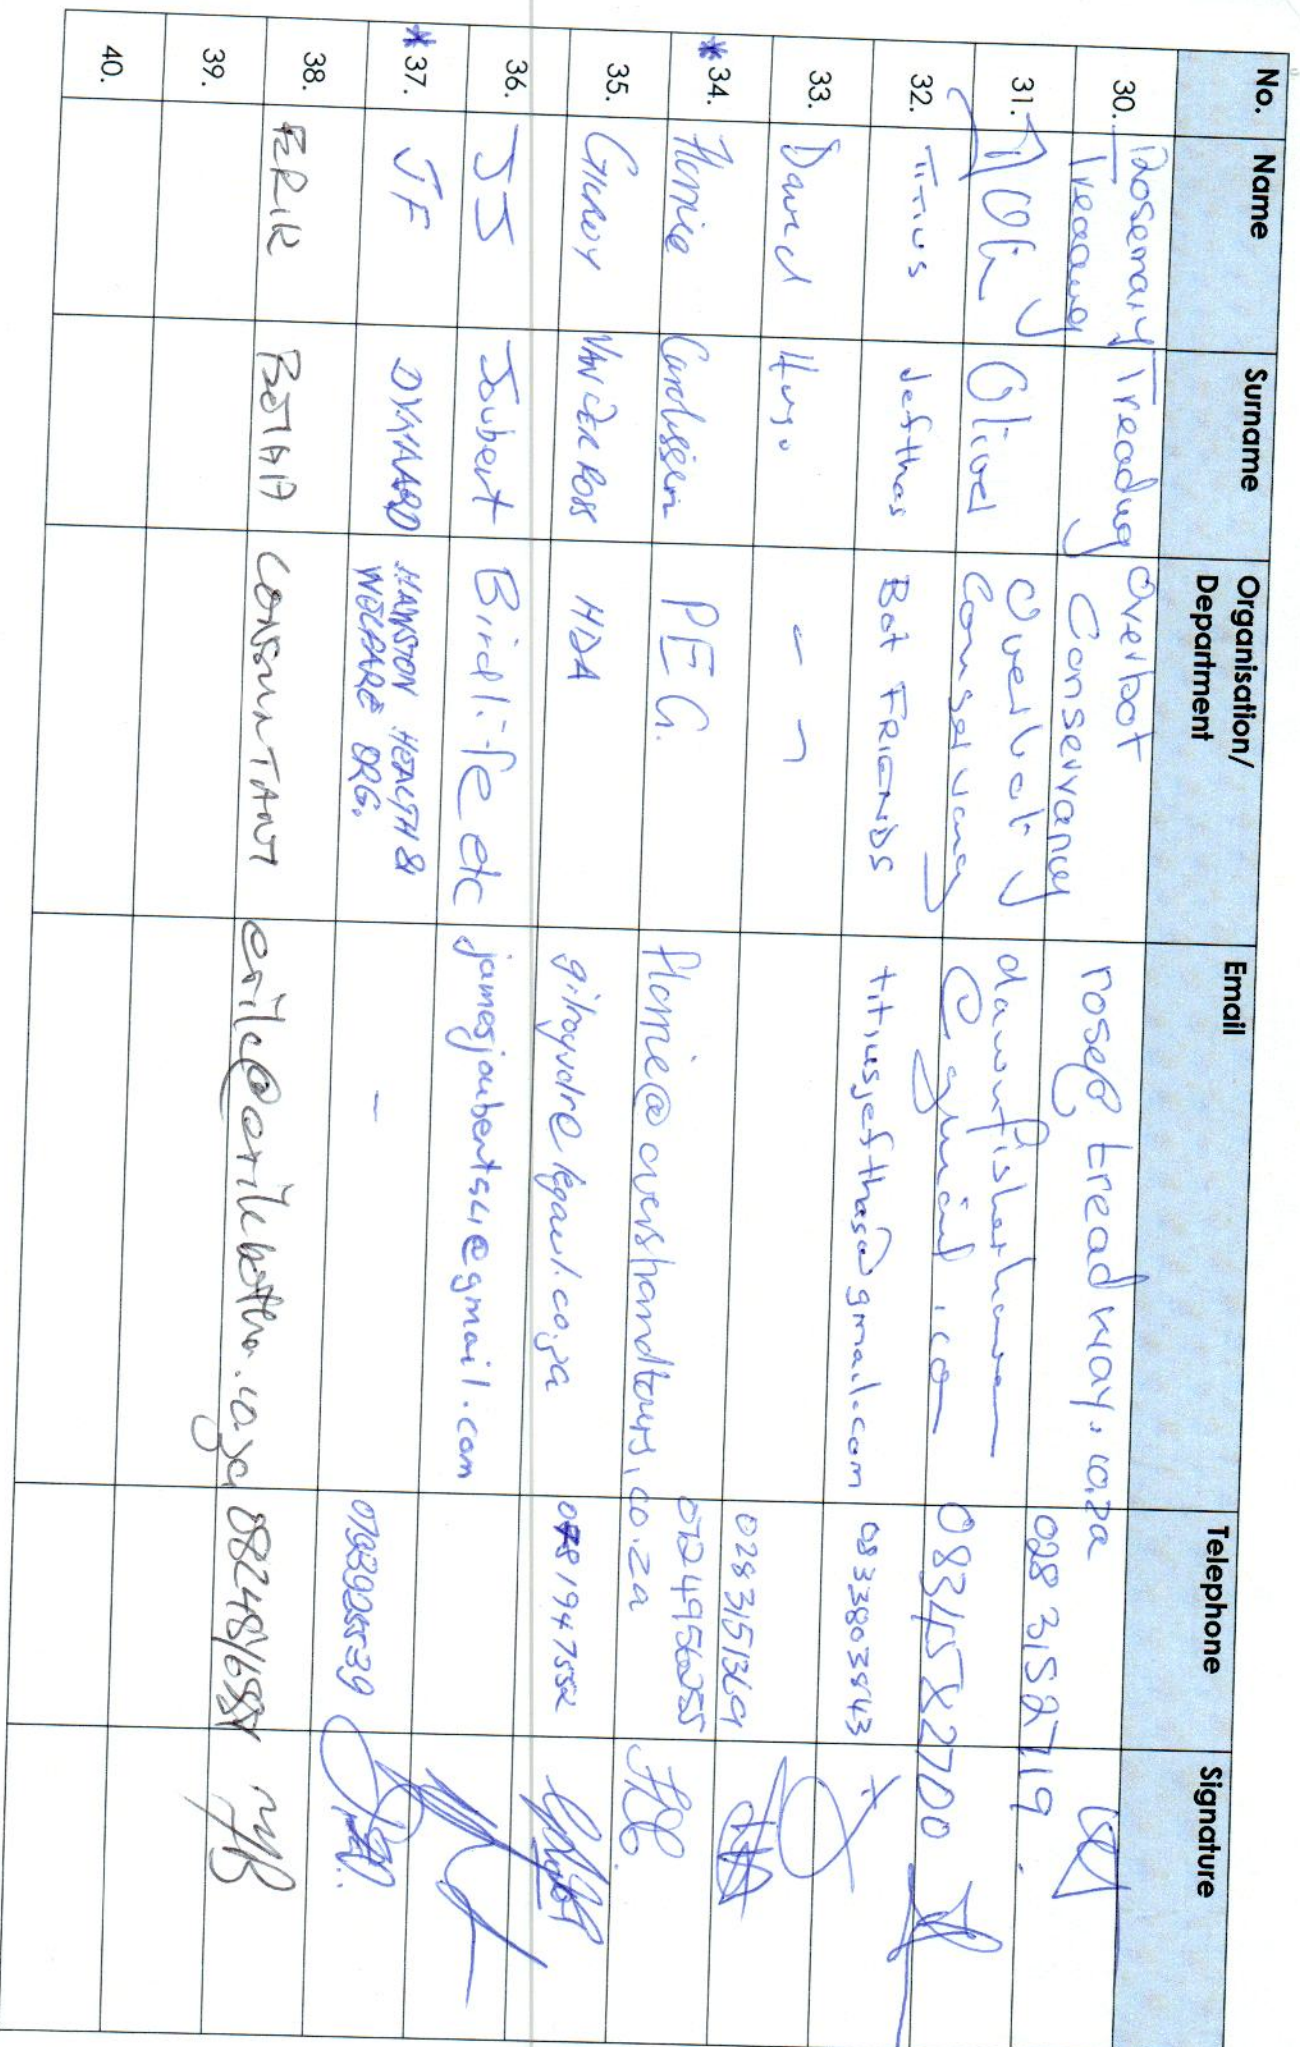 No. Name Surname Organisation/ Department Email Telephone Signature
30. Rosemary Treadway Overbot Conservancy rose@treadway.co.za 028 3152719
31. Olivier Overbot Conservancy dawnfisherhaven @gmail.com 0834582700
32. Titius Jefthas Bot FRIENDS titiusjefthas@gmail.com 0833803843
33. David Hugo - - 0283151369
*34. Florrie PEG. florrie@overstrandtours.co.za 0724956255
35. GILROY VAN DER ROSS HDA 0781947552
36. JJ Joubert Birdlife etc jamesjoubert54@gmail.com
*37. JF DYNAARD HAWSTON HEALTH & WELFARE ORG. - 0739285539
38. ERIK BOTHA CONSULTANT erik@erikbotha.co.za
39.
40.